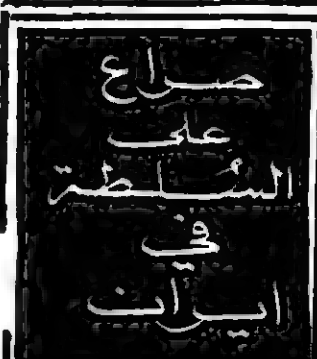 صراع
على
السلطة
في
ايران